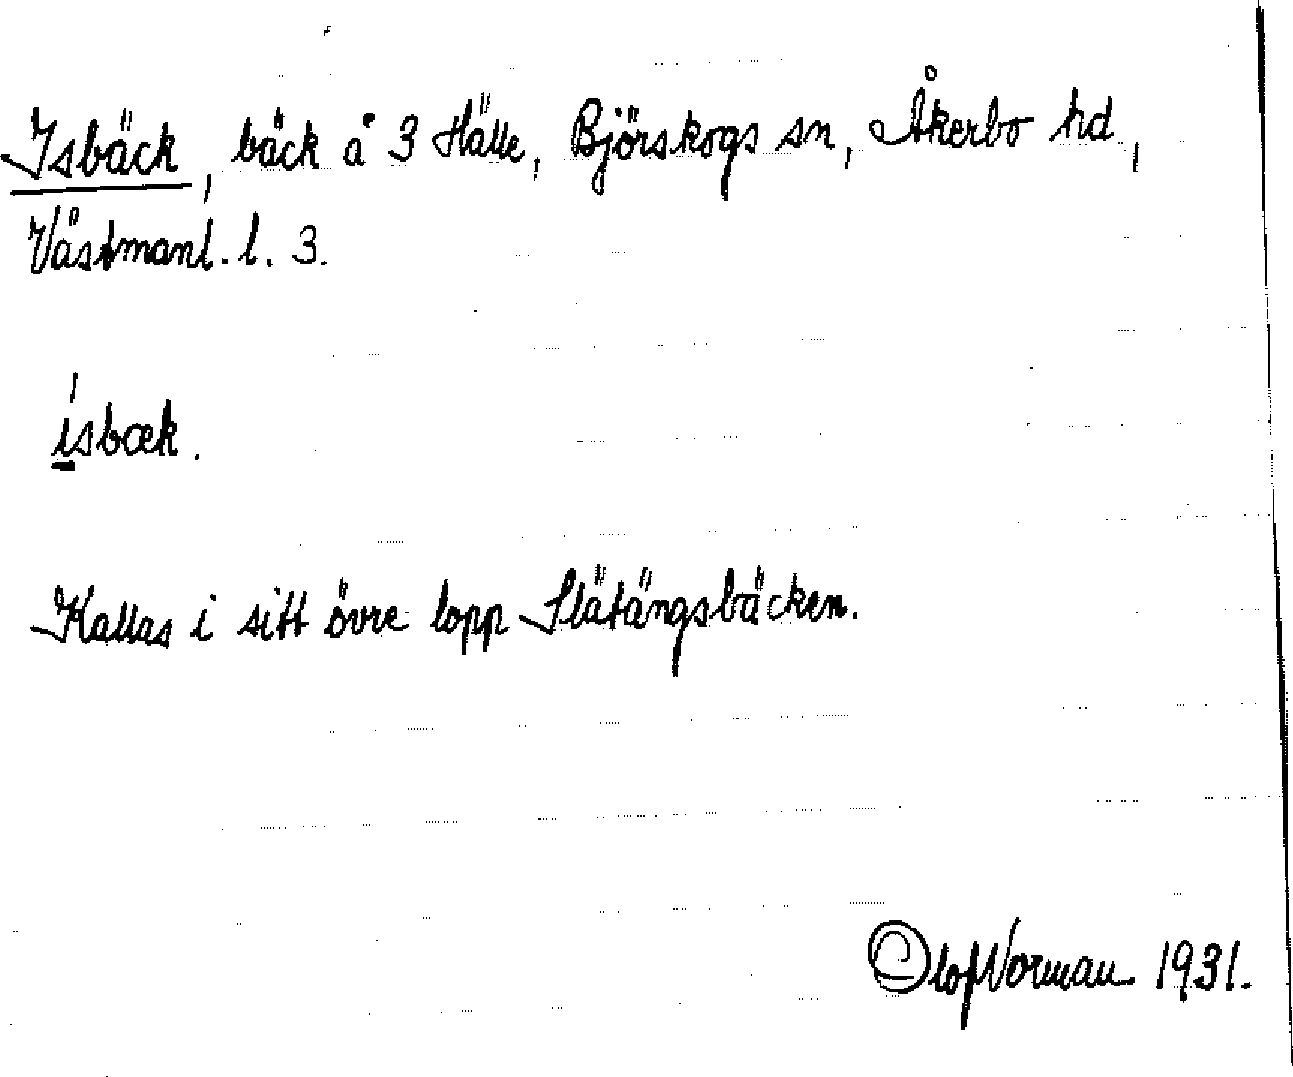 Isbäck, bäck å 3 Hälle, Björskogs sn, Åkerbo hd,
Västmanl. l. 3.
ísbæk.
Kallas i sitt övre lopp Slätängsbäcken.
Olof Norman 1931.